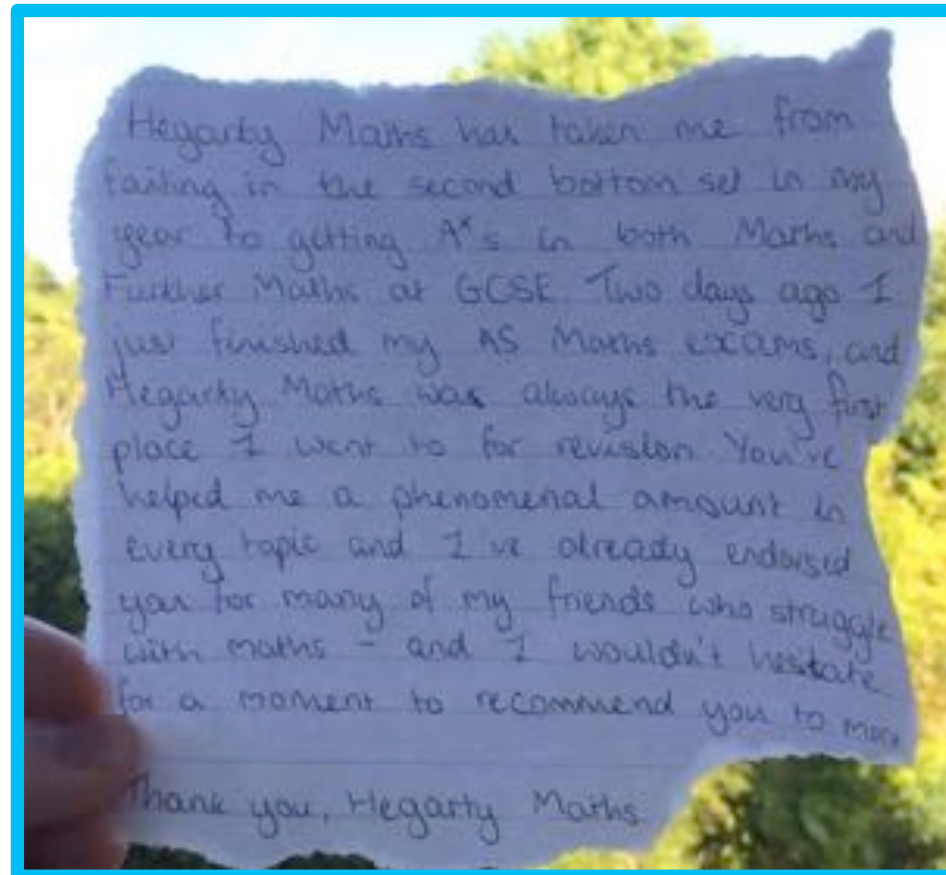 Hegarty Maths has taken me from
failing in the second bottom set in my
year to getting A*s in both Maths and
Further Maths at GCSE. Two days ago I
just finished my AS Maths exams, and
Hegarty Maths was always the very first
place I went to for revision. You've
helped me a phenomenal amount in
every topic and I've already endorsed
you for many of my friends who struggle
with maths - and I wouldn't hesitate
for a moment to recommend you to more
Thank you, Hegarty Maths